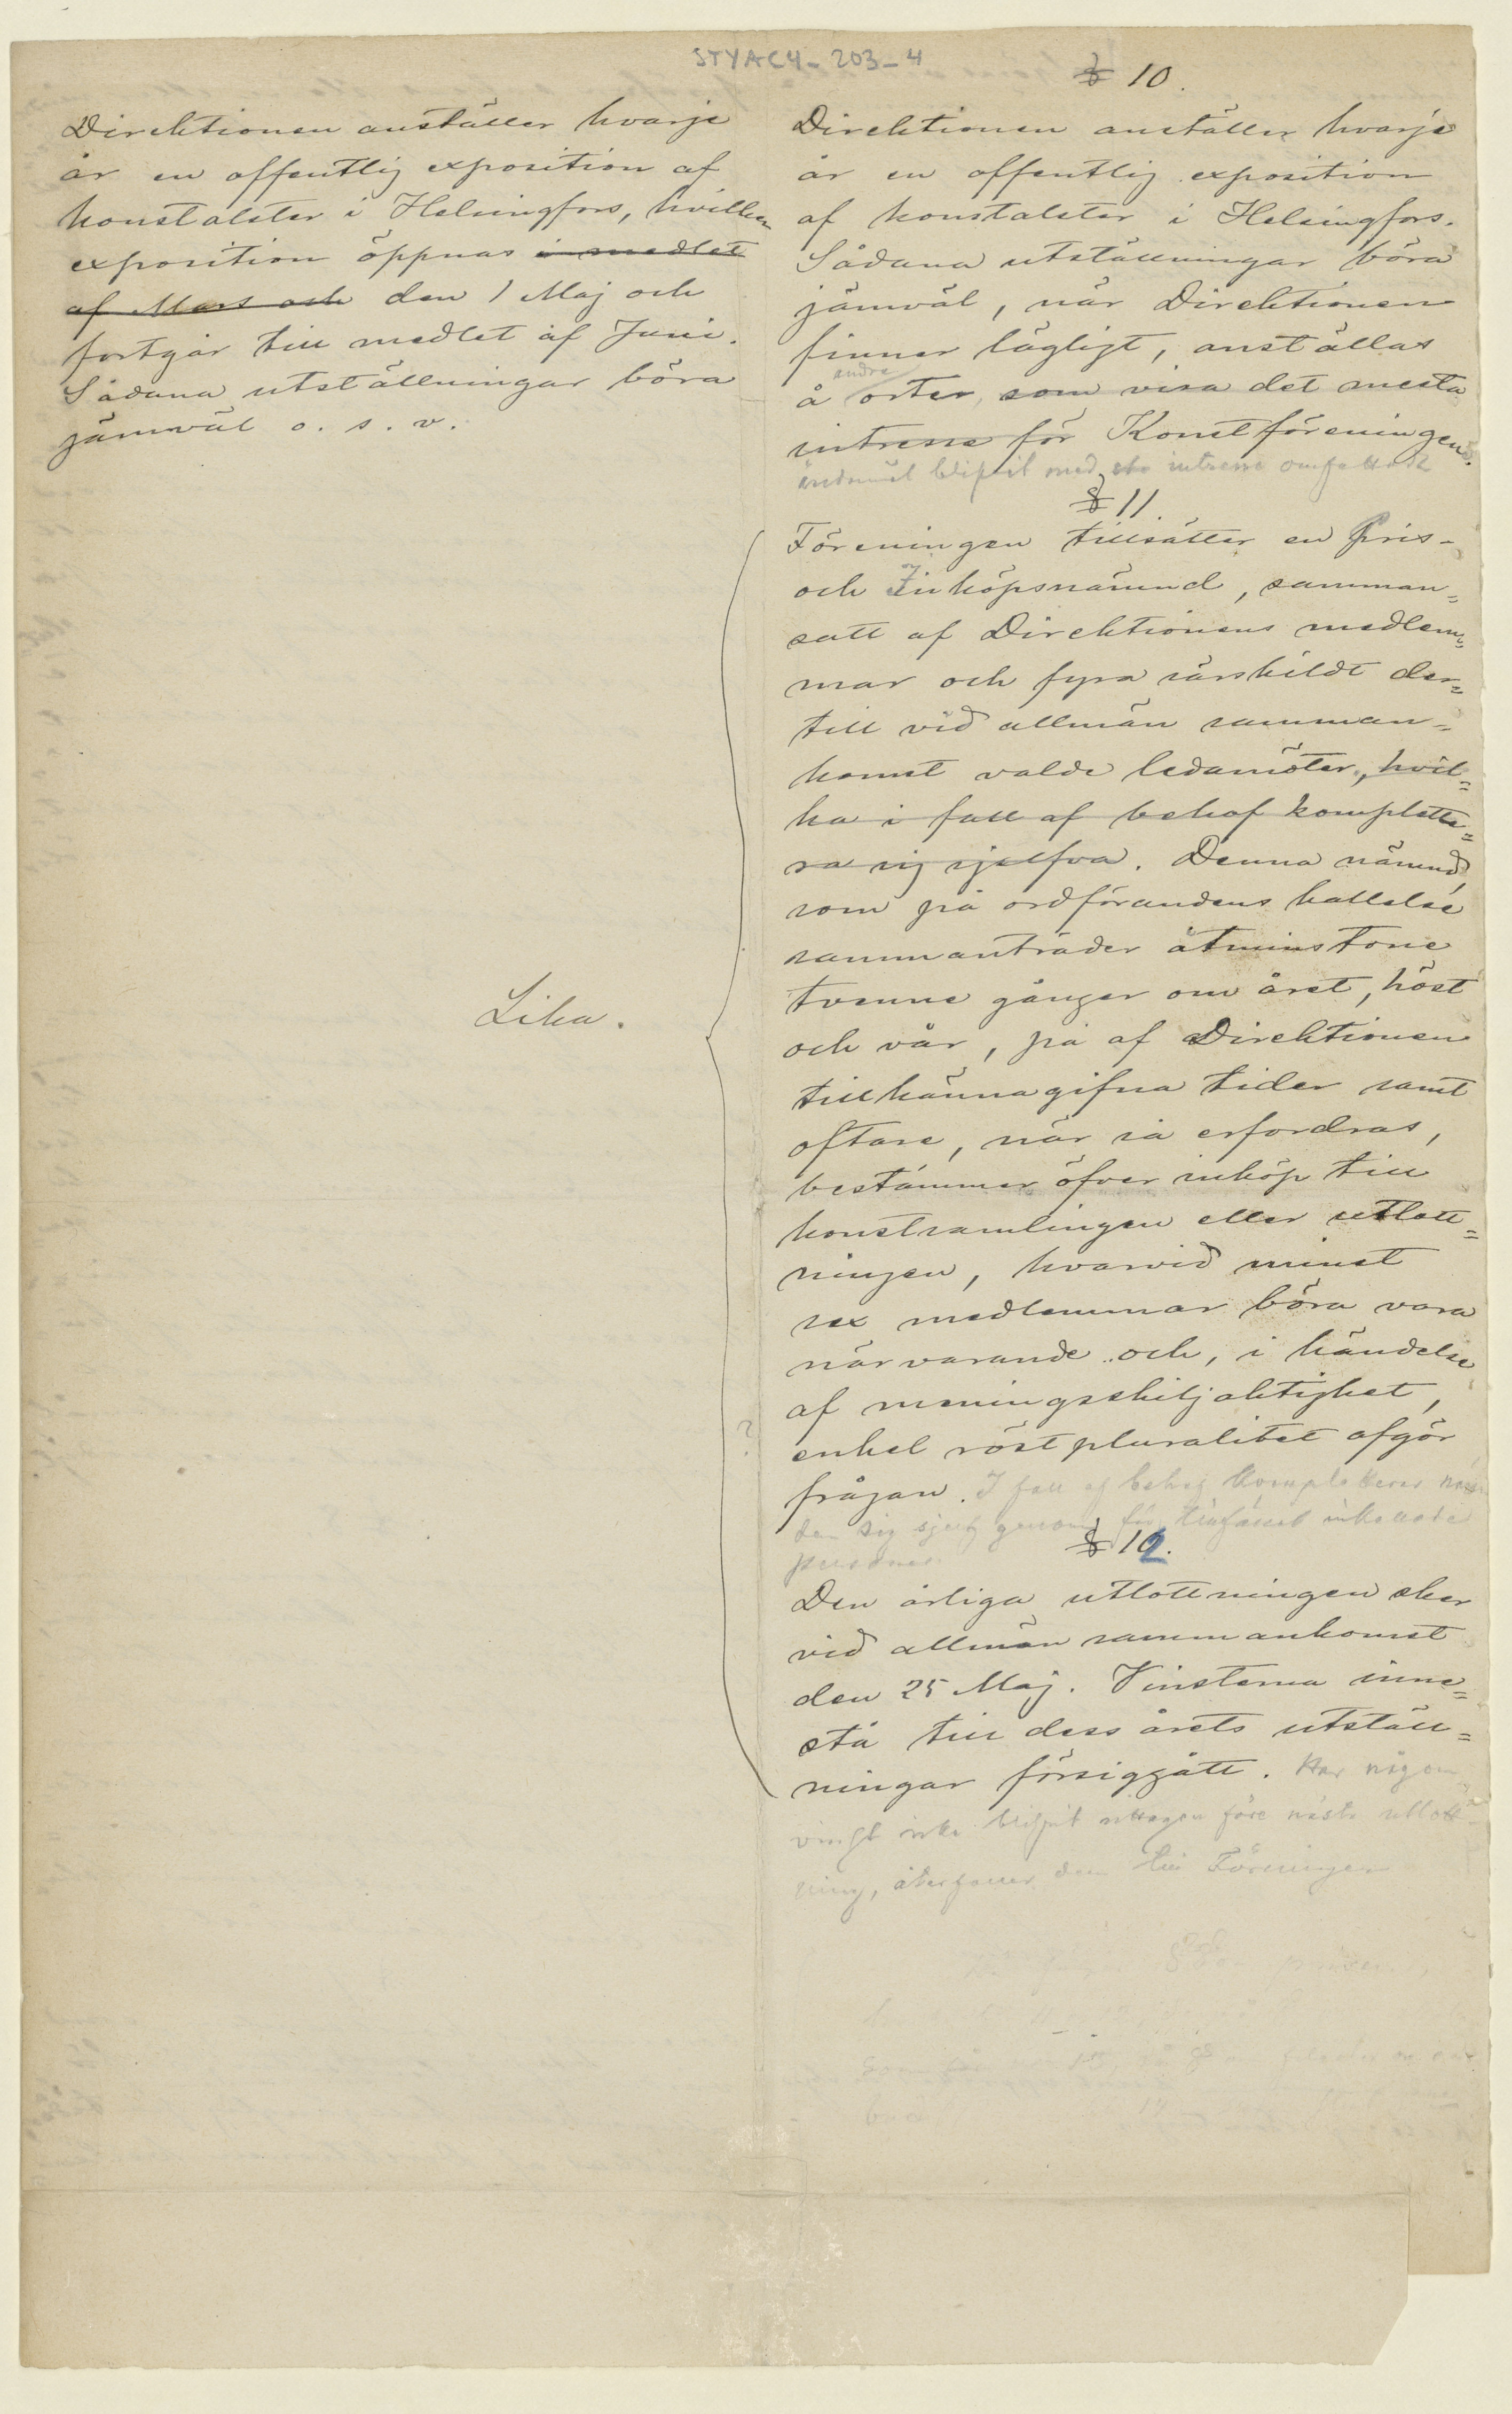 STYAC4-203-4
Direktionen anställer hvarje
år en offentlig exposition af
konstalster i Helsingfors, hvilken
exposition öppnas i medlet
af Mars och den 1 Maj och
fortgår till medlet af Juni.
Sådana utställningar böra
jämväl o. s. v.
Lika.
§ 10.
Direktionen anställer hvarje
år en offentlig exposition
af konstalster i Helsingfors.
Sådana utställningar böra
jämväl, när Direktionen
finner lägligt, anställas
andra
å orter, som visa det mesta
intresse för Konstföreningen.
ändamål blifvit med intresse omfattadt
§ 11.
Föreningen tillsätter en Pris-
och Inköpsnämnd, samman=
satt af Direktionens medlem=
mar och fyra särskildt der=
till vid allmän samman=
komst valde ledamöter, hvil=
ka i fall af behof komplette=
ra sig sjelfva. Denna nämnd,
som på ordförandens kallelse
sammanträder åtminstone
tvenne gånger om året, höst
och vår, på af Direktionen
tillkännagifna tider samt
oftare, när så erfordras,
bestämmer öfver inköp till
konstsamlingen eller utlott=
ningen, hvarvid minst
sex medlemmar böra vara
närvarande och, i händelse
af meningsskiljaktighet,
?
enkel röstpluralitet afgör
frågan. I fall af behof kompletterar näm
den sig sjelf genom för tillfället inkallade
personer.
§ 12.
Den årliga utlottningen sker
vid allmän sammankomst
den 25 Maj. Vinsterna inne=
stå till dess årets utställ=
ningar försiggått. Har någon
vinst icke blifvit uttagen före nästa utlott
ning, återfaller den till Föreningen